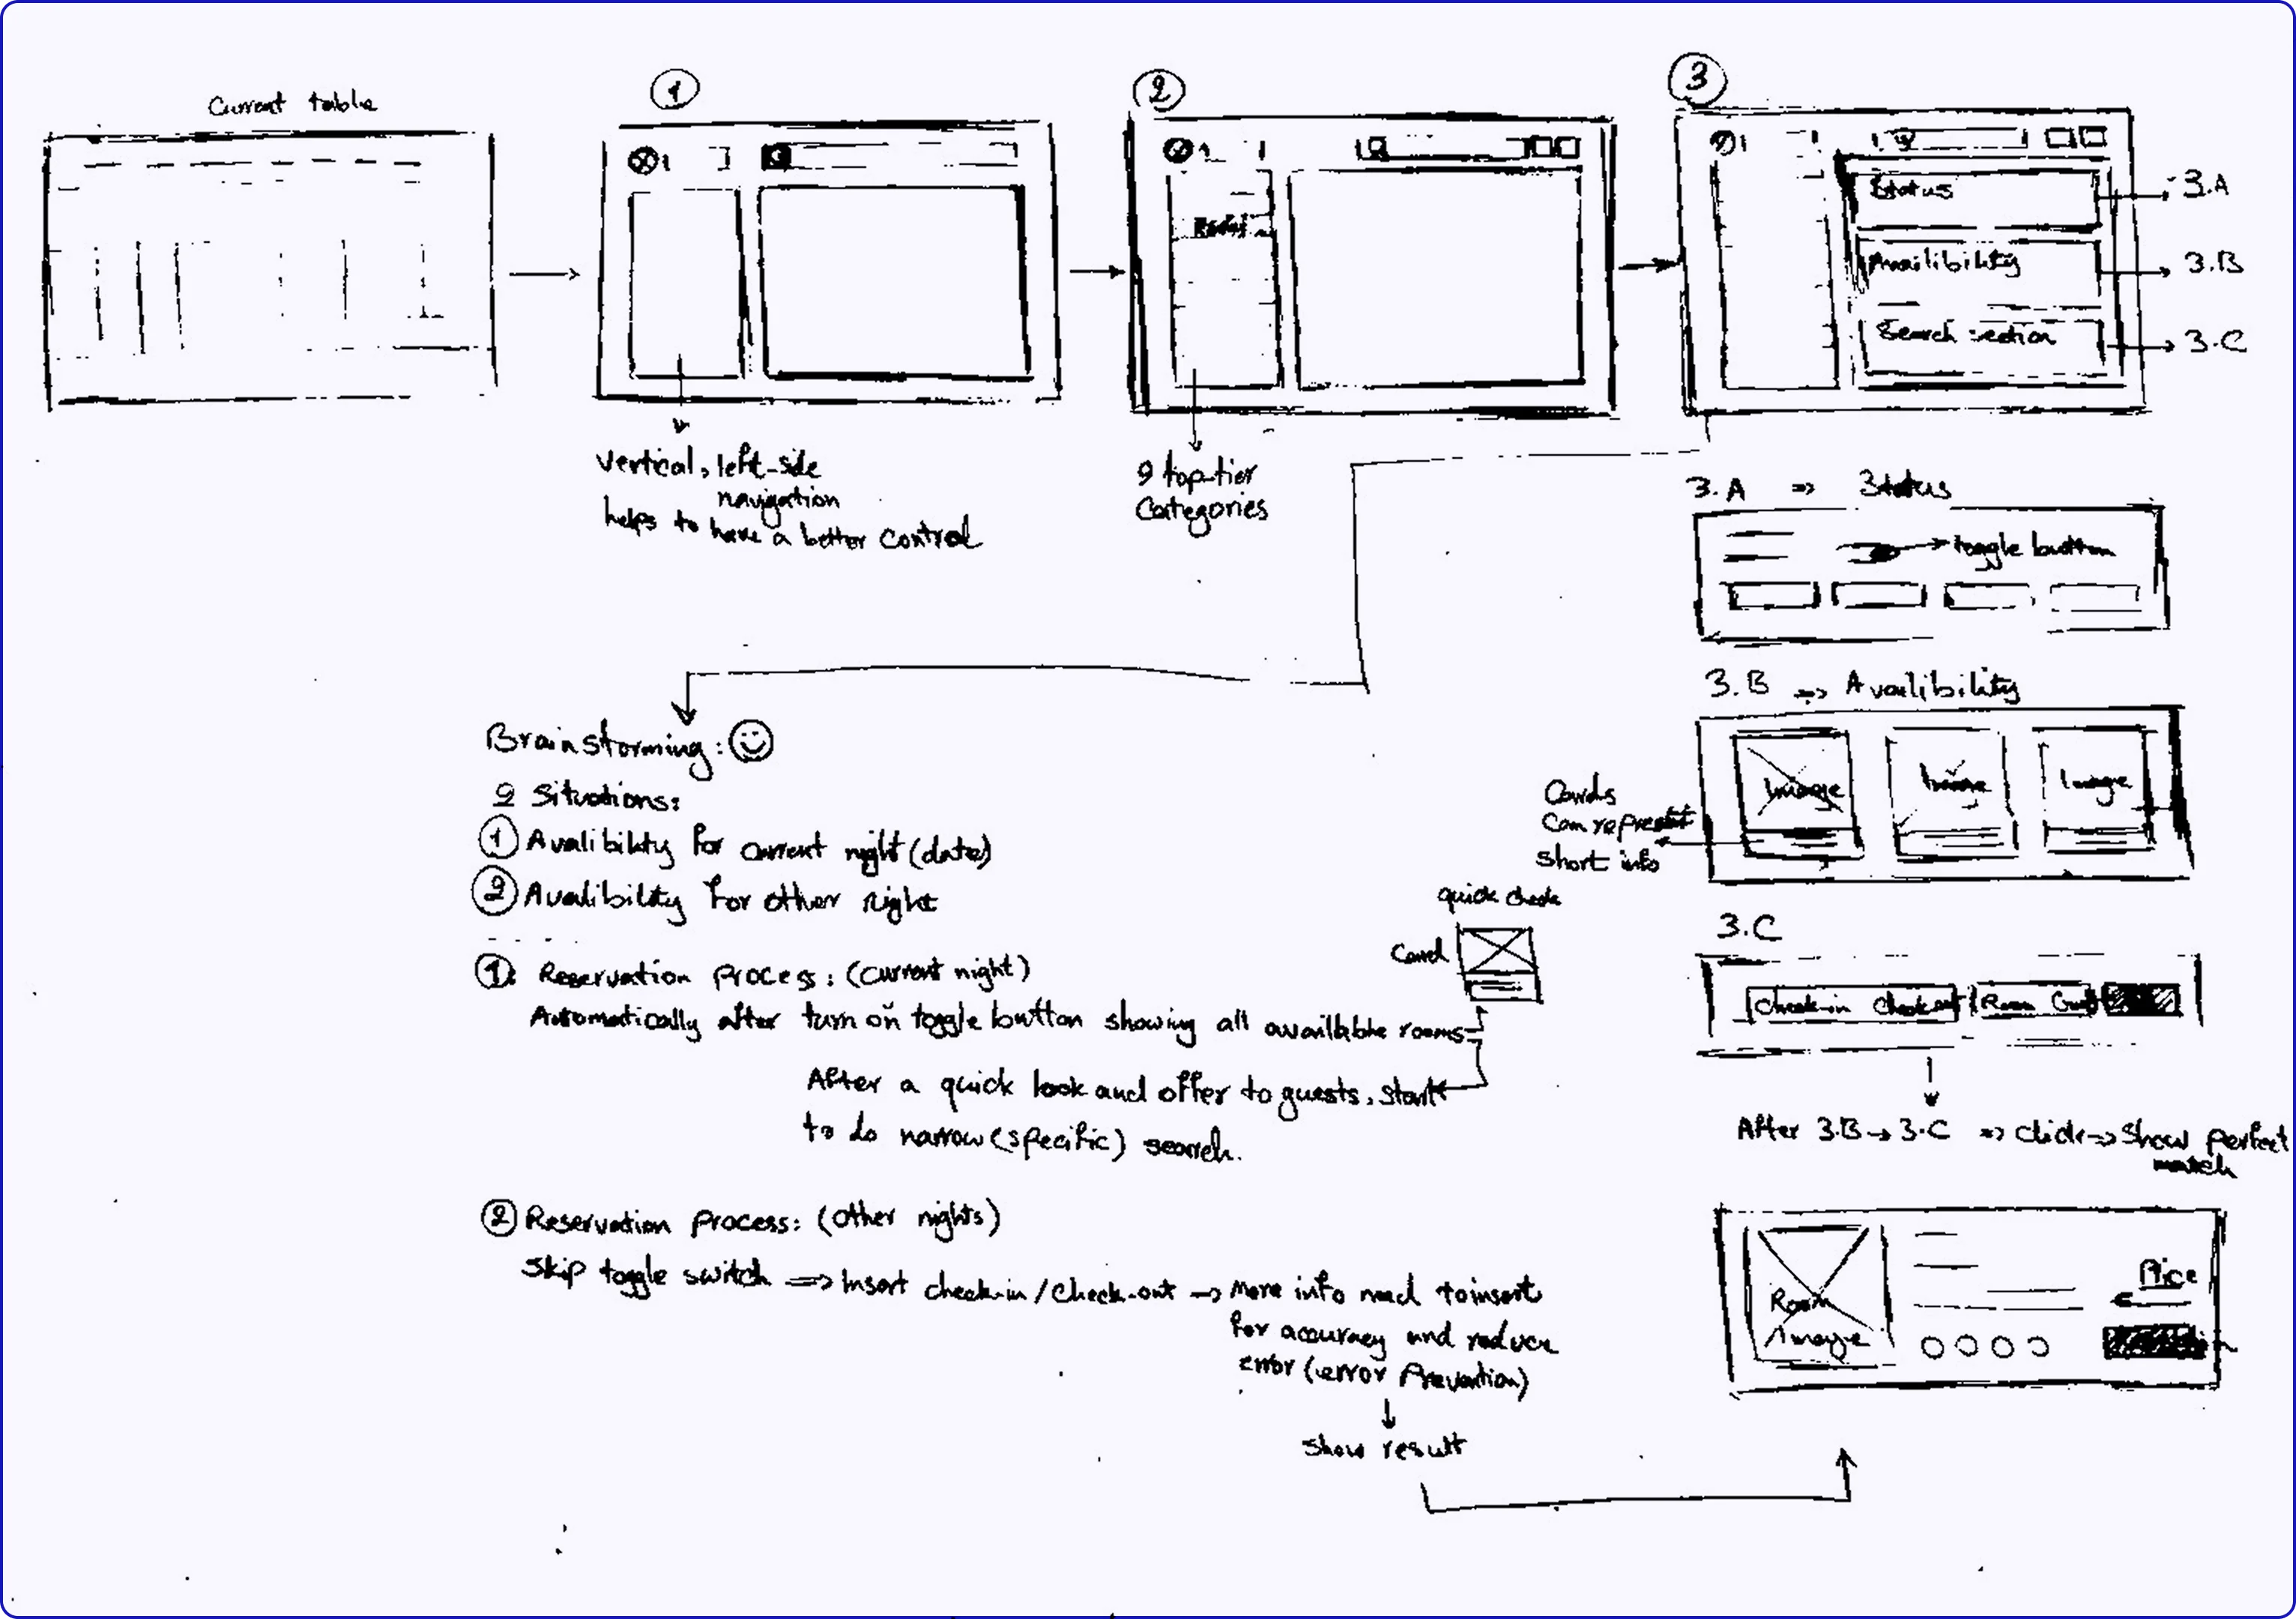 Current table
1
2
3
Status
3.A
Availibility
3.B
Search section
3.C
vertical, left-side
navigation
helps to have a better control
9 top-tier
Categories
3.A => Status
toggle button
3.B => Availibility
Image
Image
Image
Cards
Can represent
short info
quick check
Card
3.C
Check-in Check-out
Room Guest
After 3.B → 3.C => click => show perfect
match
Room
Image
Price
Brainstorming:
2 Situations:
1 Avalibility for current night (date)
2 Avalibility for other night
1: Reservation process: (current night)
Automatically after turn on toggle button showing all available rooms
After a quick look and offer to guests, start
to do narrow (specific) search.
2 Reservation process: (other nights)
Skip toggle switch => Insert check-in / check-out → More info need to insert
for accuracy and reduce
error (error prevention)
show result